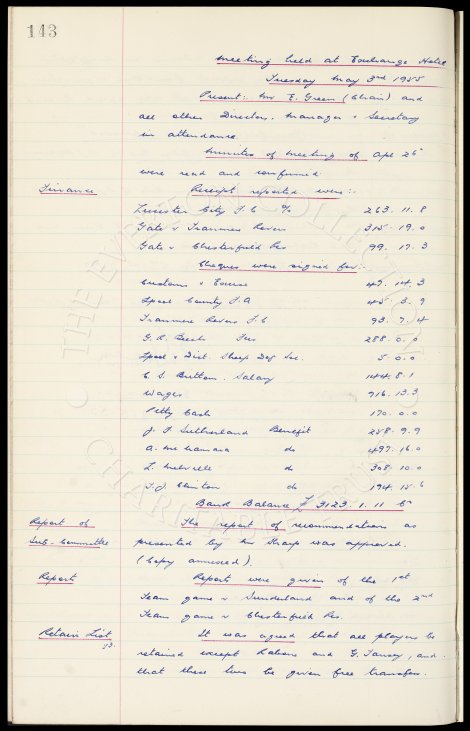 143
Meeting held at Exchange Hotel
Tuesday May 3rd 1955
Present:- Mr E. Green (Chair) and
all other Directors. Manager & Secretary
in attendance.
Minutes of meeting of Apl 26th
were read and confirmed
Finance Receipts reported were:-
Leicester City F.C. 263. 11. 8
Gate v Tranmere Rovers 315. 19. 0
Gate v Chesterfield Res 99. 17. 3
Cheques were signed for:-
Customs & Excise 47. 14. 3
Lpool County F.A 45. 3. 9
Tranmere Rovers F.C 93. 7. 4
288. 0. 0
Lpool & Dist. Sheep Dog Soc. 5. 0. 0
C. S. Britton. Salary 144. 8. 1
Wages 916. 13. 3
Petty Cash 170. 0. 0
J. F. Sutherland Benefit 258. 9. 9
A. McNamara do 497. 16. 0
L. Melville do 308. 10. 0
T. J. Clinton do 194. 15. 6
Bank Balance £ 3123. 1. 11
Report of The report of recommendations as
Sub-Committee presented by Mr Sharp was approved.
(Copy annexed).
Report Report were given of the 1st
Team game v Sunderland and of the 2nd
Team game v Chesterfield Res.
Retain List It was agreed that all players be
retained except and G. Tansey, and
that these two be given free transfers.
THE EVERTON COLLECTION
CHARITABLE TRUST